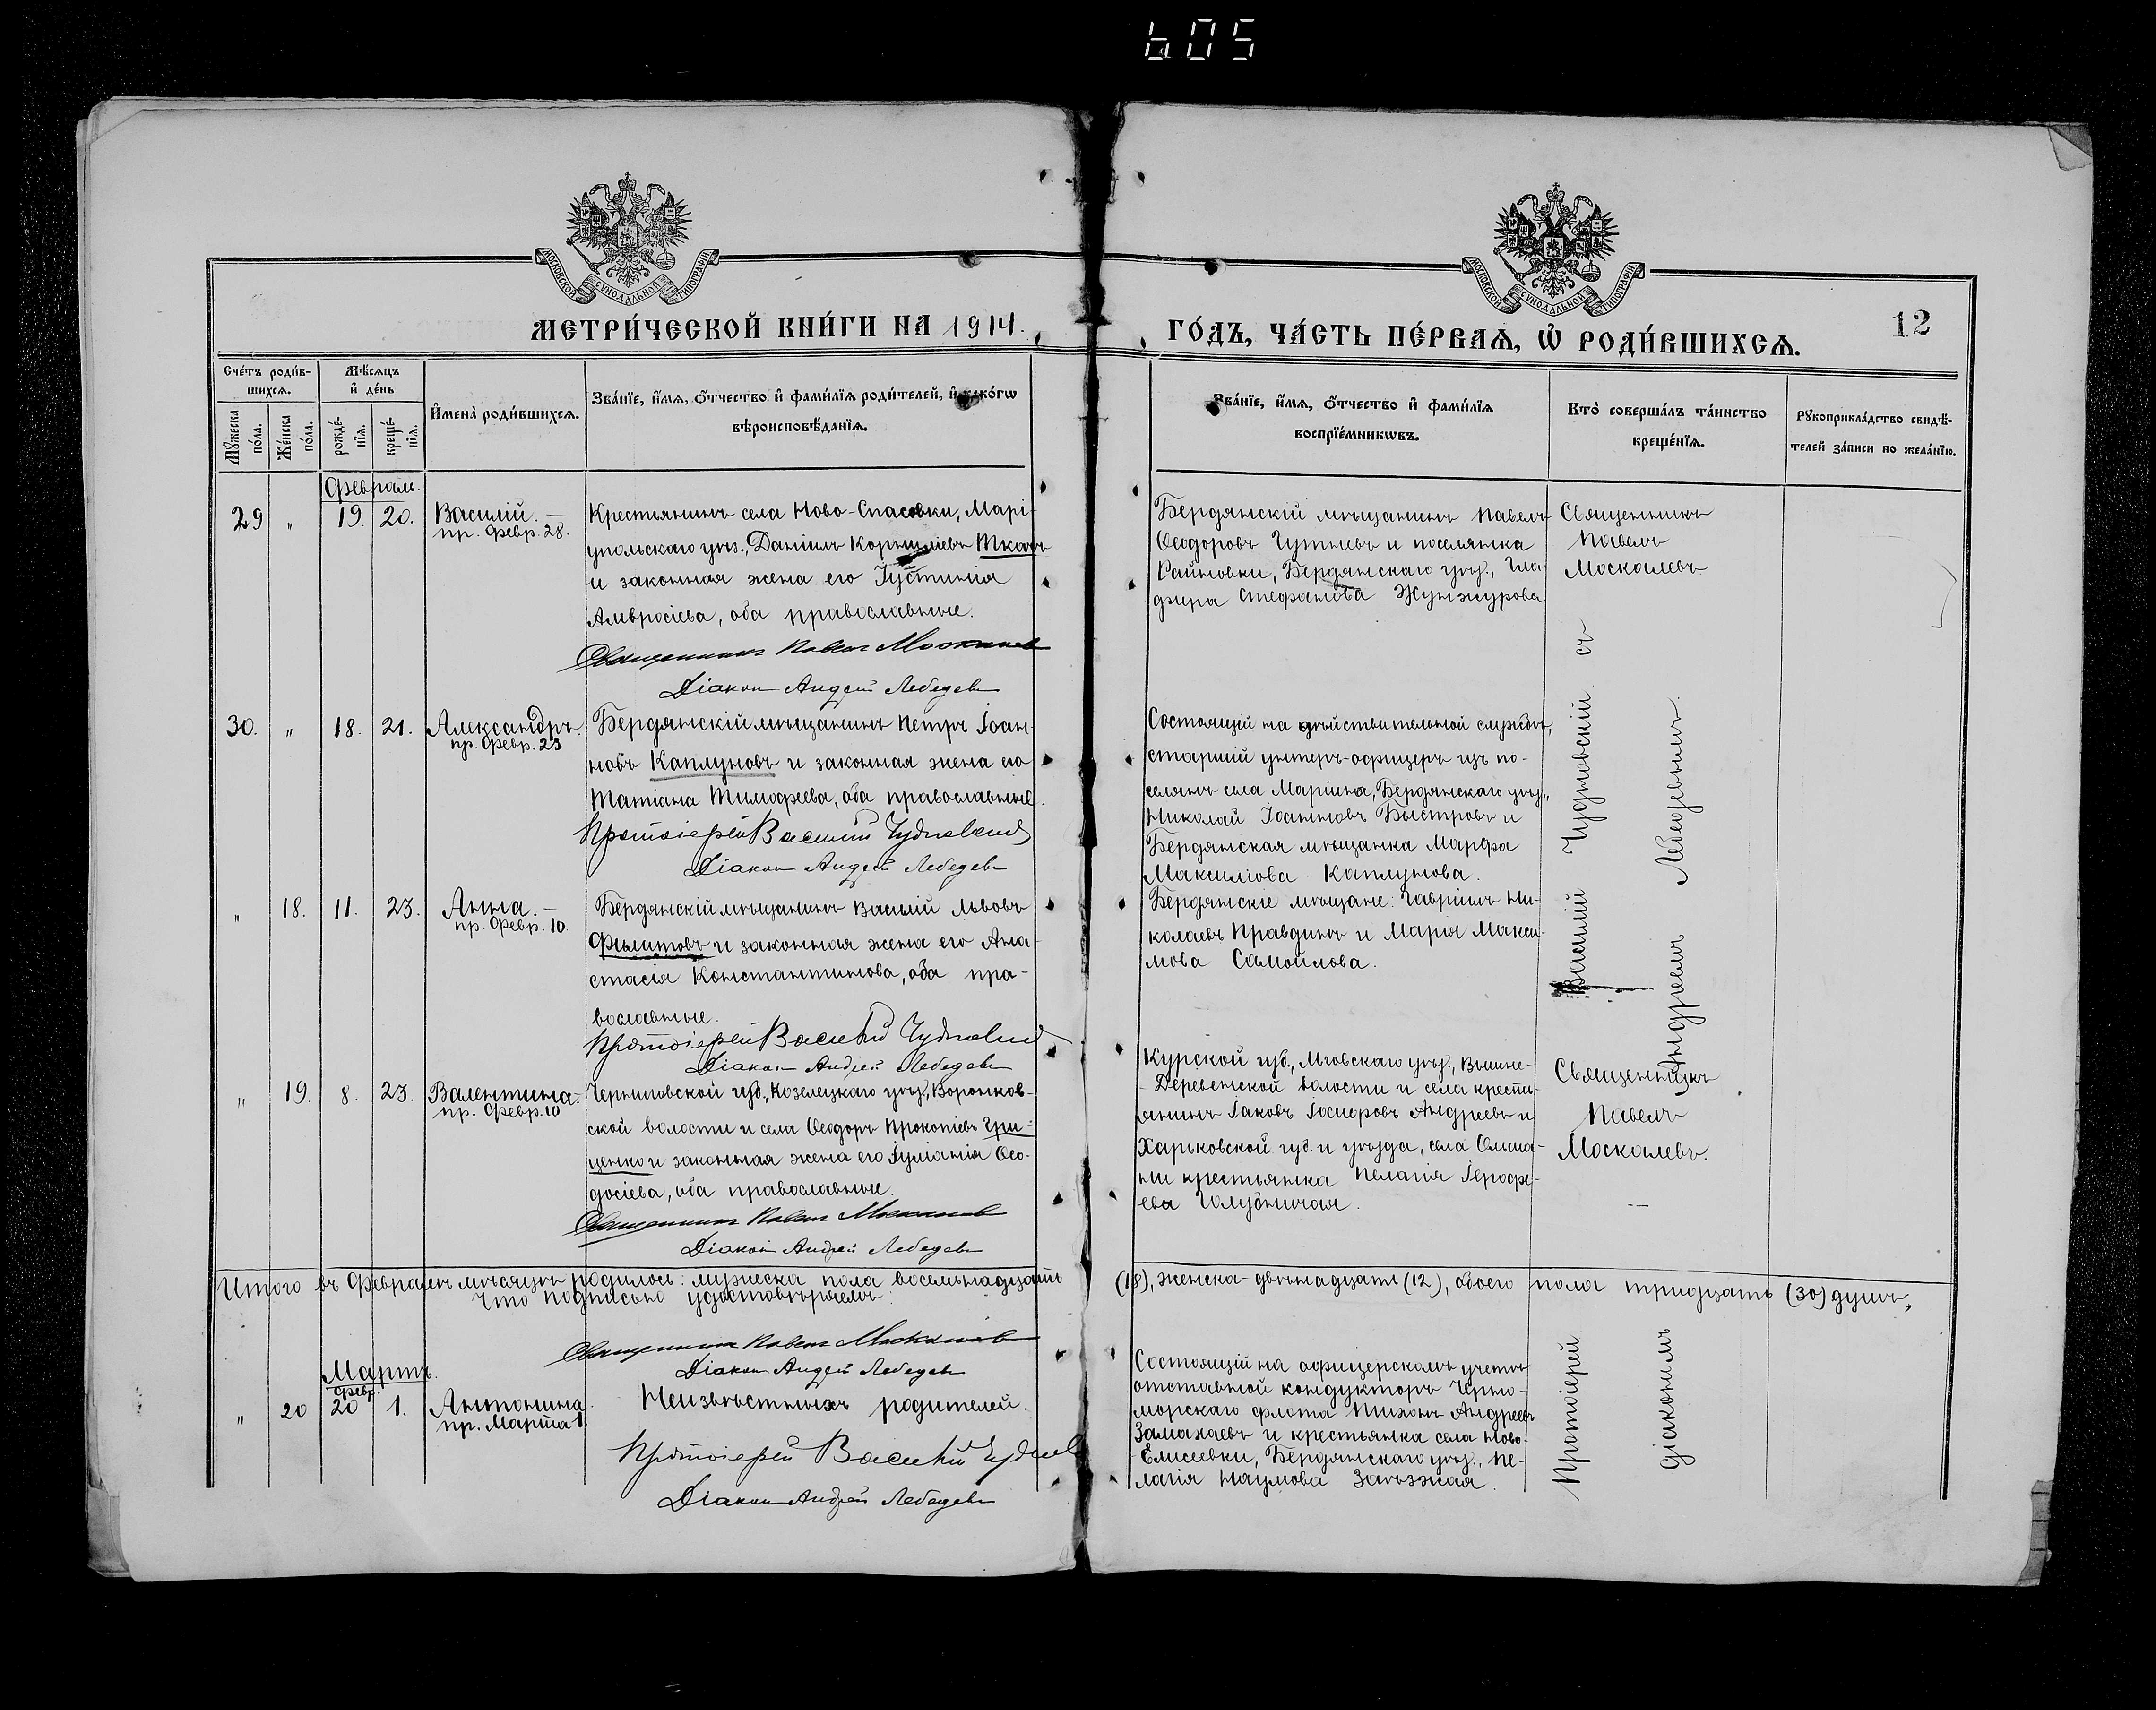 605
МОСКОВСКОЙ СѴНОДАЛЬНОЙ ТИПОГРАФІИ
МОСКОВСКОЙ СѴНОДАЛЬНОЙ ТИПОГРАФІИ
МЕТРИ́ЧЕСКОЙ КНИ́ГИ НА 1914.
ГО́ДЪ, ЧА́СТЬ ПЕ́РВАѦ, Ѡ҆ РОДИ́ВШИХСѦ.
12
Сче́тъ роди́в-
шихсѧ.
Мѣ́сѧцъ
и҆ де́нь
Мꙋ́жеска
по́ла.
Же́нска
по́ла.
рожде́-
нїѧ.
креще́-
нїѧ.
И҆мена̀ роди́вшихсѧ.
Зва́нїе, и҆́мѧ, ѻ҆́тчество и҆ фами́лїѧ роди́телей, и҆ како́гѡ
вѣроисповѣ́данїѧ.
Зва́нїе, и҆́мѧ, ѻ҆́тчество и҆ фами́лїѧ
воспрїе́мникѡвъ.
Кто̀ соверша́лъ та́инство
креще́нїѧ.
Рꙋкоприкла́дство свидѣ́-
телей за́писи по жела́нїю.
Февраль.
29 " 19. 20. Василій. —
пр. Февр. 28.
Крестьянинъ села Ново-Спасовки, Марі-
упольскаго уѣз., Даніилъ Корниліевъ Ткачъ
и законная жена его Іустинія
Амвросіева, оба православные.
Священникъ Павелъ Москалевъ
Діаконъ Андрей Лебедевъ
Бердянскій мѣщанинъ Павелъ
Ѳеодоровъ и поселянка
Райновки, Бердянскаго уѣз., Гла-
фира Стефанова Жунжурова.
Священникъ
Павелъ
Москалевъ
30. " 18. 21. Александръ.
пр. Февр. 23
Бердянскій мѣщанинъ Петръ Іоан-
новъ Каплуновъ и законная жена его
Татіана Тимофеева, оба православные.
Протоіерей Василій Чудновскій
Діаконъ Андрей Лебедевъ
Состоящій на дѣйствительной службѣ,
старшій унтеръ-офицеръ изъ по-
селянъ села Маріина, Бердянскаго уѣз.,
Николай Іоанновъ Быстровъ и
Бердянская мѣщанка Марфа
Каплунова.
" 18. 11. 23. Анна. —
пр. Февр. 10.
Бердянскій мѣщанинъ Василій Львовъ
Филатовъ и законная жена его Ана-
стасія Константинова, оба пра-
вославные.
Протоіерей Василій Чудновскій
Діаконъ Андрей Лебедевъ
Бердянскіе мѣщане: Гавріилъ Ни-
колаевъ Правдинъ и Марія Макси-
мова Самойлова.
" 19. 8. 23. Валентина.
пр. Февр. 10
Черниговской губ., Козелецкаго уѣз., Воронков-
ской волости и села Ѳеодоръ Прокопіевъ Гри-
ценко и законная жена его Іуліанія Ѳео-
досіева, оба православные.
Священникъ Павелъ Москалевъ
Діаконъ Андрей Лебедевъ
Курской губ., Льговскаго уѣз., Вышне-
Деревенской волости и села крестья-
янинъ Іаковъ Андреевъ и
Харьковской губ. и уѣзда, села Ольша-
ны крестьянка Пелагія Іерофе-
ева Голубничая.
Священникъ
Павелъ
Москалевъ.
Итого въ Февралѣ мѣсяцѣ родилось: мужеска пола восемьнадцать (18), женска-двѣнадцать (12), обоего пола тридцать (30) душъ,
что подписью удостовѣряемъ:
Священникъ Павелъ Москалевъ
Діаконъ Андрей Лебедевъ
Мартъ.
Февр.
" 20 20 1. Антонина.
пр. Марта 1.
Неизвѣстныхъ родителей.
Протоіерей Василій Чудновскій
Діаконъ Андрей Лебедевъ
Состоящій на офицерскомъ учетѣ
отставной кондукторъ Черно-
морскаго флота Тихонъ Андреевъ
Заманаевъ и крестьянка села Ново-
Елисеевки, Бердянскаго уѣз., Пе-
лагія Наумова Заѣзжая.
Протоіерей Василій Чудновскій съ
діакономъ Андреемъ Лебедевымъ.